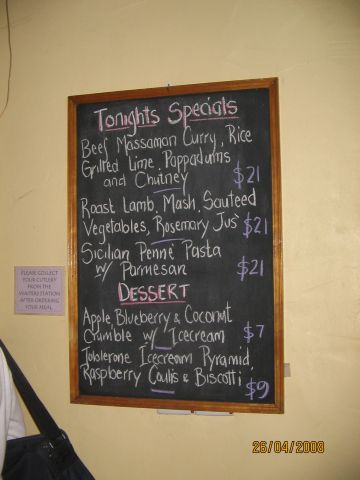 Tonights Specials
Beef Massaman Curry, Rice
Grilled Lime, Pappadums
and Chutney $21
Roast Lamb, Mash, Sauteed
Vegetables, Rosemary Jus' $21
Sicilian Penne Pasta
w/ Parmesan $21
DESSERT
Apple, Blueberry & Coconut
Crumble w/ Icecream $7
Toblerone Icecream Pyramid,
Raspberry Coulis & Biscotti $9
PLEASE COLLECT
YOUR CUTLERY
FROM THE
WAITERS STATION
AFTER ORDERING
YOUR MEAL
26/04/2008